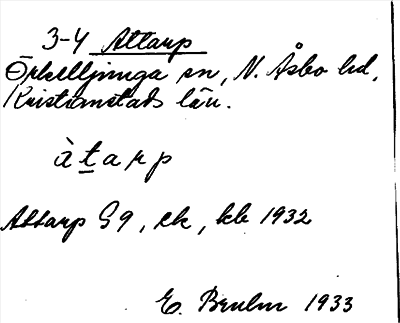 3-4 Attarp
Örkelljunga sn, N. Åsbo hd,
Kristianstads län.
àtarp
Attarp G9, ek, kb 1932
E. 1933